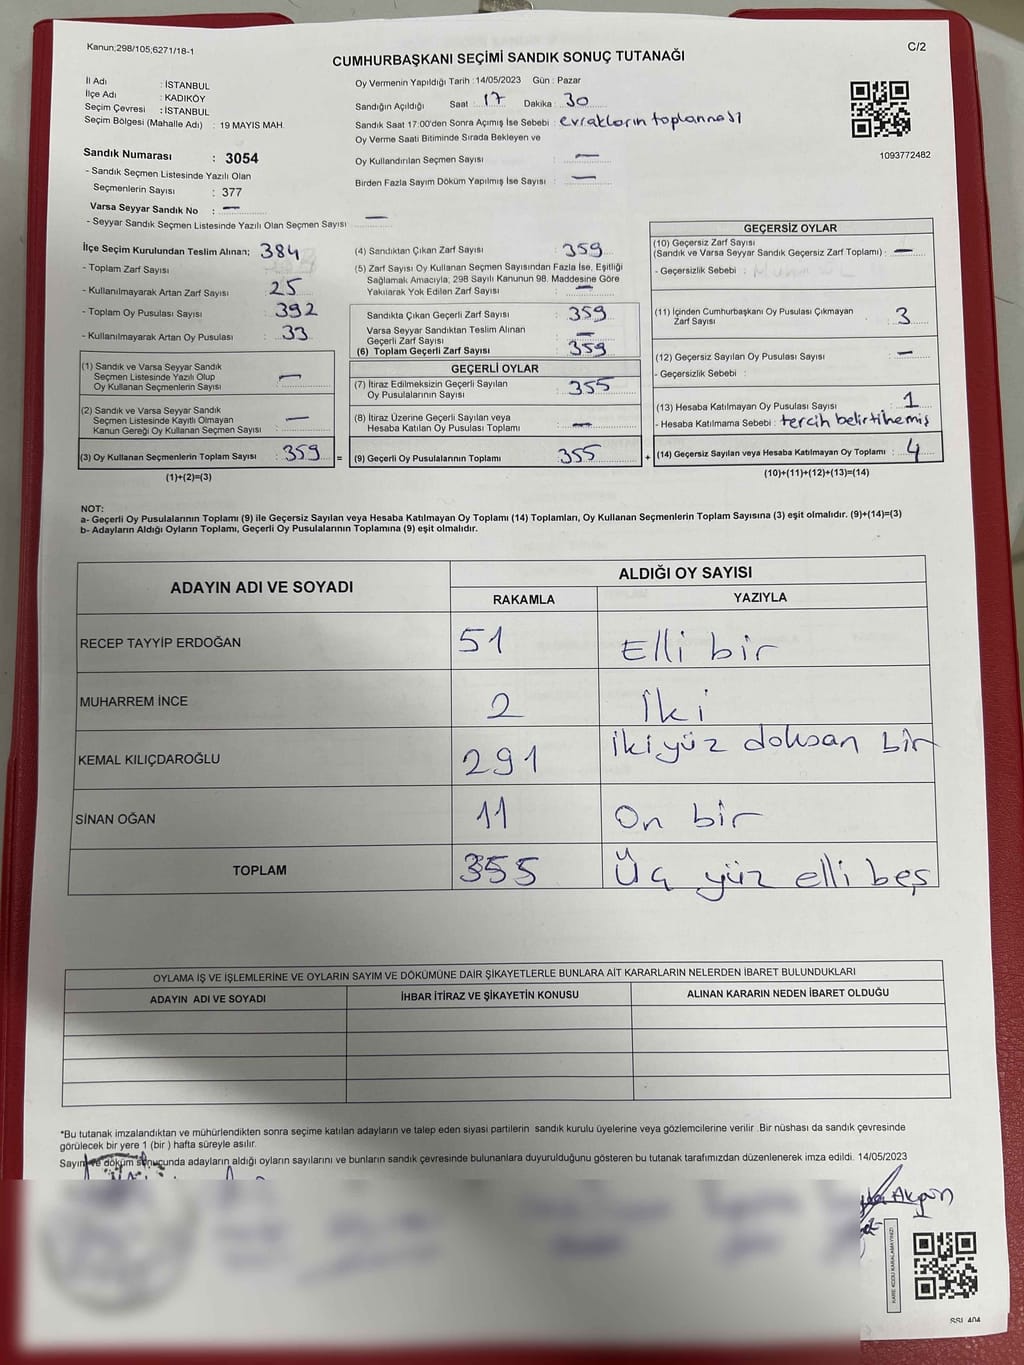 Kanun;298/105;6271/18-1
C/2
CUMHURBAŞKANI SEÇİMİ SANDIK SONUÇ TUTANAĞI
İl Adı : İSTANBUL
İlçe Adı : KADIKÖY
Seçim Çevresi : İSTANBUL
Seçim Bölgesi (Mahalle Adı) : 19 MAYIS MAH.
Oy Vermenin Yapıldığı Tarih : 14/05/2023 Gün : Pazar
Sandığın Açıldığı Saat : 17 Dakika : 30
Sandık Saat 17:00'den Sonra Açımış İse Sebebi : evrakların toplanması
Oy Verme Saati Bitiminde Sırada Bekleyen ve
Oy Kullandırılan Seçmen Sayısı : —
Birden Fazla Sayım Döküm Yapılmış İse Sayısı : —
1093772482
Sandık Numarası : 3054
- Sandık Seçmen Listesinde Yazılı Olan
Seçmenlerin Sayısı : 377
Varsa Seyyar Sandık No : —
- Seyyar Sandık Seçmen Listesinde Yazılı Olan Seçmen Sayısı : —
İlçe Seçim Kurulundan Teslim Alınan; 384
- Toplam Zarf Sayısı :
- Kullanılmayarak Artan Zarf Sayısı : 25
- Toplam Oy Pusulası Sayısı : 392
- Kullanılmayarak Artan Oy Pusulası : 33
(1) Sandık ve Varsa Seyyar Sandık
Seçmen Listesinde Yazılı Olup
Oy Kullanan Seçmenlerin Sayısı : —
(2) Sandık ve Varsa Seyyar Sandık
Seçmen Listesinde Kayıtlı Olmayan
Kanun Gereği Oy Kullanan Seçmen Sayısı : —
(3) Oy Kullanan Seçmenlerin Toplam Sayısı : 359 =
(1)+(2)=(3)
(4) Sandıktan Çıkan Zarf Sayısı : 359
(5) Zarf Sayısı Oy Kullanan Seçmen Sayısından Fazla İse, Eşitliği
Sağlamak Amacıyla, 298 Sayılı Kanunun 98. Maddesine Göre
Yakılarak Yok Edilen Zarf Sayısı : —
Sandıkta Çıkan Geçerli Zarf Sayısı : 359
Varsa Seyyar Sandıktan Teslim Alınan
Geçerli Zarf Sayısı : —
(6) Toplam Geçerli Zarf Sayısı : 359
GEÇERLİ OYLAR
(7) İtiraz Edilmeksizin Geçerli Sayılan
Oy Pusulalarının Sayısı : 355
(8) İtiraz Üzerine Geçerli Sayılan veya
Hesaba Katılan Oy Pusulası Toplamı : —
(9) Geçerli Oy Pusulalarının Toplamı : 355 +
GEÇERSİZ OYLAR
(10) Geçersiz Zarf Sayısı
(Sandık ve Varsa Seyyar Sandık Geçersiz Zarf Toplamı) : —
- Geçersizlik Sebebi :
(11) İçinden Cumhurbaşkanı Oy Pusulası Çıkmayan
Zarf Sayısı : 3
(12) Geçersiz Sayılan Oy Pusulası Sayısı : —
- Geçersizlik Sebebi :
(13) Hesaba Katılmayan Oy Pusulası Sayısı : 1
- Hesaba Katılmama Sebebi : tercih belirtilmemiş
(14) Geçersiz Sayılan veya Hesaba Katılmayan Oy Toplamı : 4
(10)+(11)+(12)+(13)=(14)
NOT:
a- Geçerli Oy Pusulalarının Toplamı (9) ile Geçersiz Sayılan veya Hesaba Katılmayan Oy Toplamı (14) Toplamları, Oy Kullanan Seçmenlerin Toplam Sayısına (3) eşit olmalıdır. (9)+(14)=(3)
b- Adayların Aldığı Oyların Toplamı, Geçerli Oy Pusulalarının Toplamına (9) eşit olmalıdır.
ADAYIN ADI VE SOYADI
ALDIĞI OY SAYISI
RAKAMLA YAZIYLA
RECEP TAYYİP ERDOĞAN 51 Elli bir
MUHARREM İNCE 2 İki
KEMAL KILIÇDAROĞLU 291 İkiyüz doksan bir
SİNAN OĞAN 11 On bir
TOPLAM 355 Üç yüz elli beş
OYLAMA İŞ VE İŞLEMLERİNE VE OYLARIN SAYIM VE DÖKÜMÜNE DAİR ŞİKAYETLERLE BUNLARA AİT KARARLARIN NELERDEN İBARET BULUNDUKLARI
ADAYIN ADI VE SOYADI İHBAR İTİRAZ VE ŞİKAYETİN KONUSU ALINAN KARARIN NEDEN İBARET OLDUĞU
*Bu tutanak imzalandıktan ve mühürlendikten sonra seçime katılan adayların ve talep eden siyasi partilerin sandık kurulu üyelerine veya gözlemcilerine verilir .Bir nüshası da sandık çevresinde
görülecek bir yere 1 (bir ) hafta süreyle asılır.
Sayım ve döküm sonucunda adayların aldığı oyların sayılarını ve bunların sandık çevresinde bulunanlara duyurulduğunu gösteren bu tutanak tarafımızdan düzenlenerek imza edildi. 14/05/2023
Akgün
KARE KODU KARALAMAYINIZ!